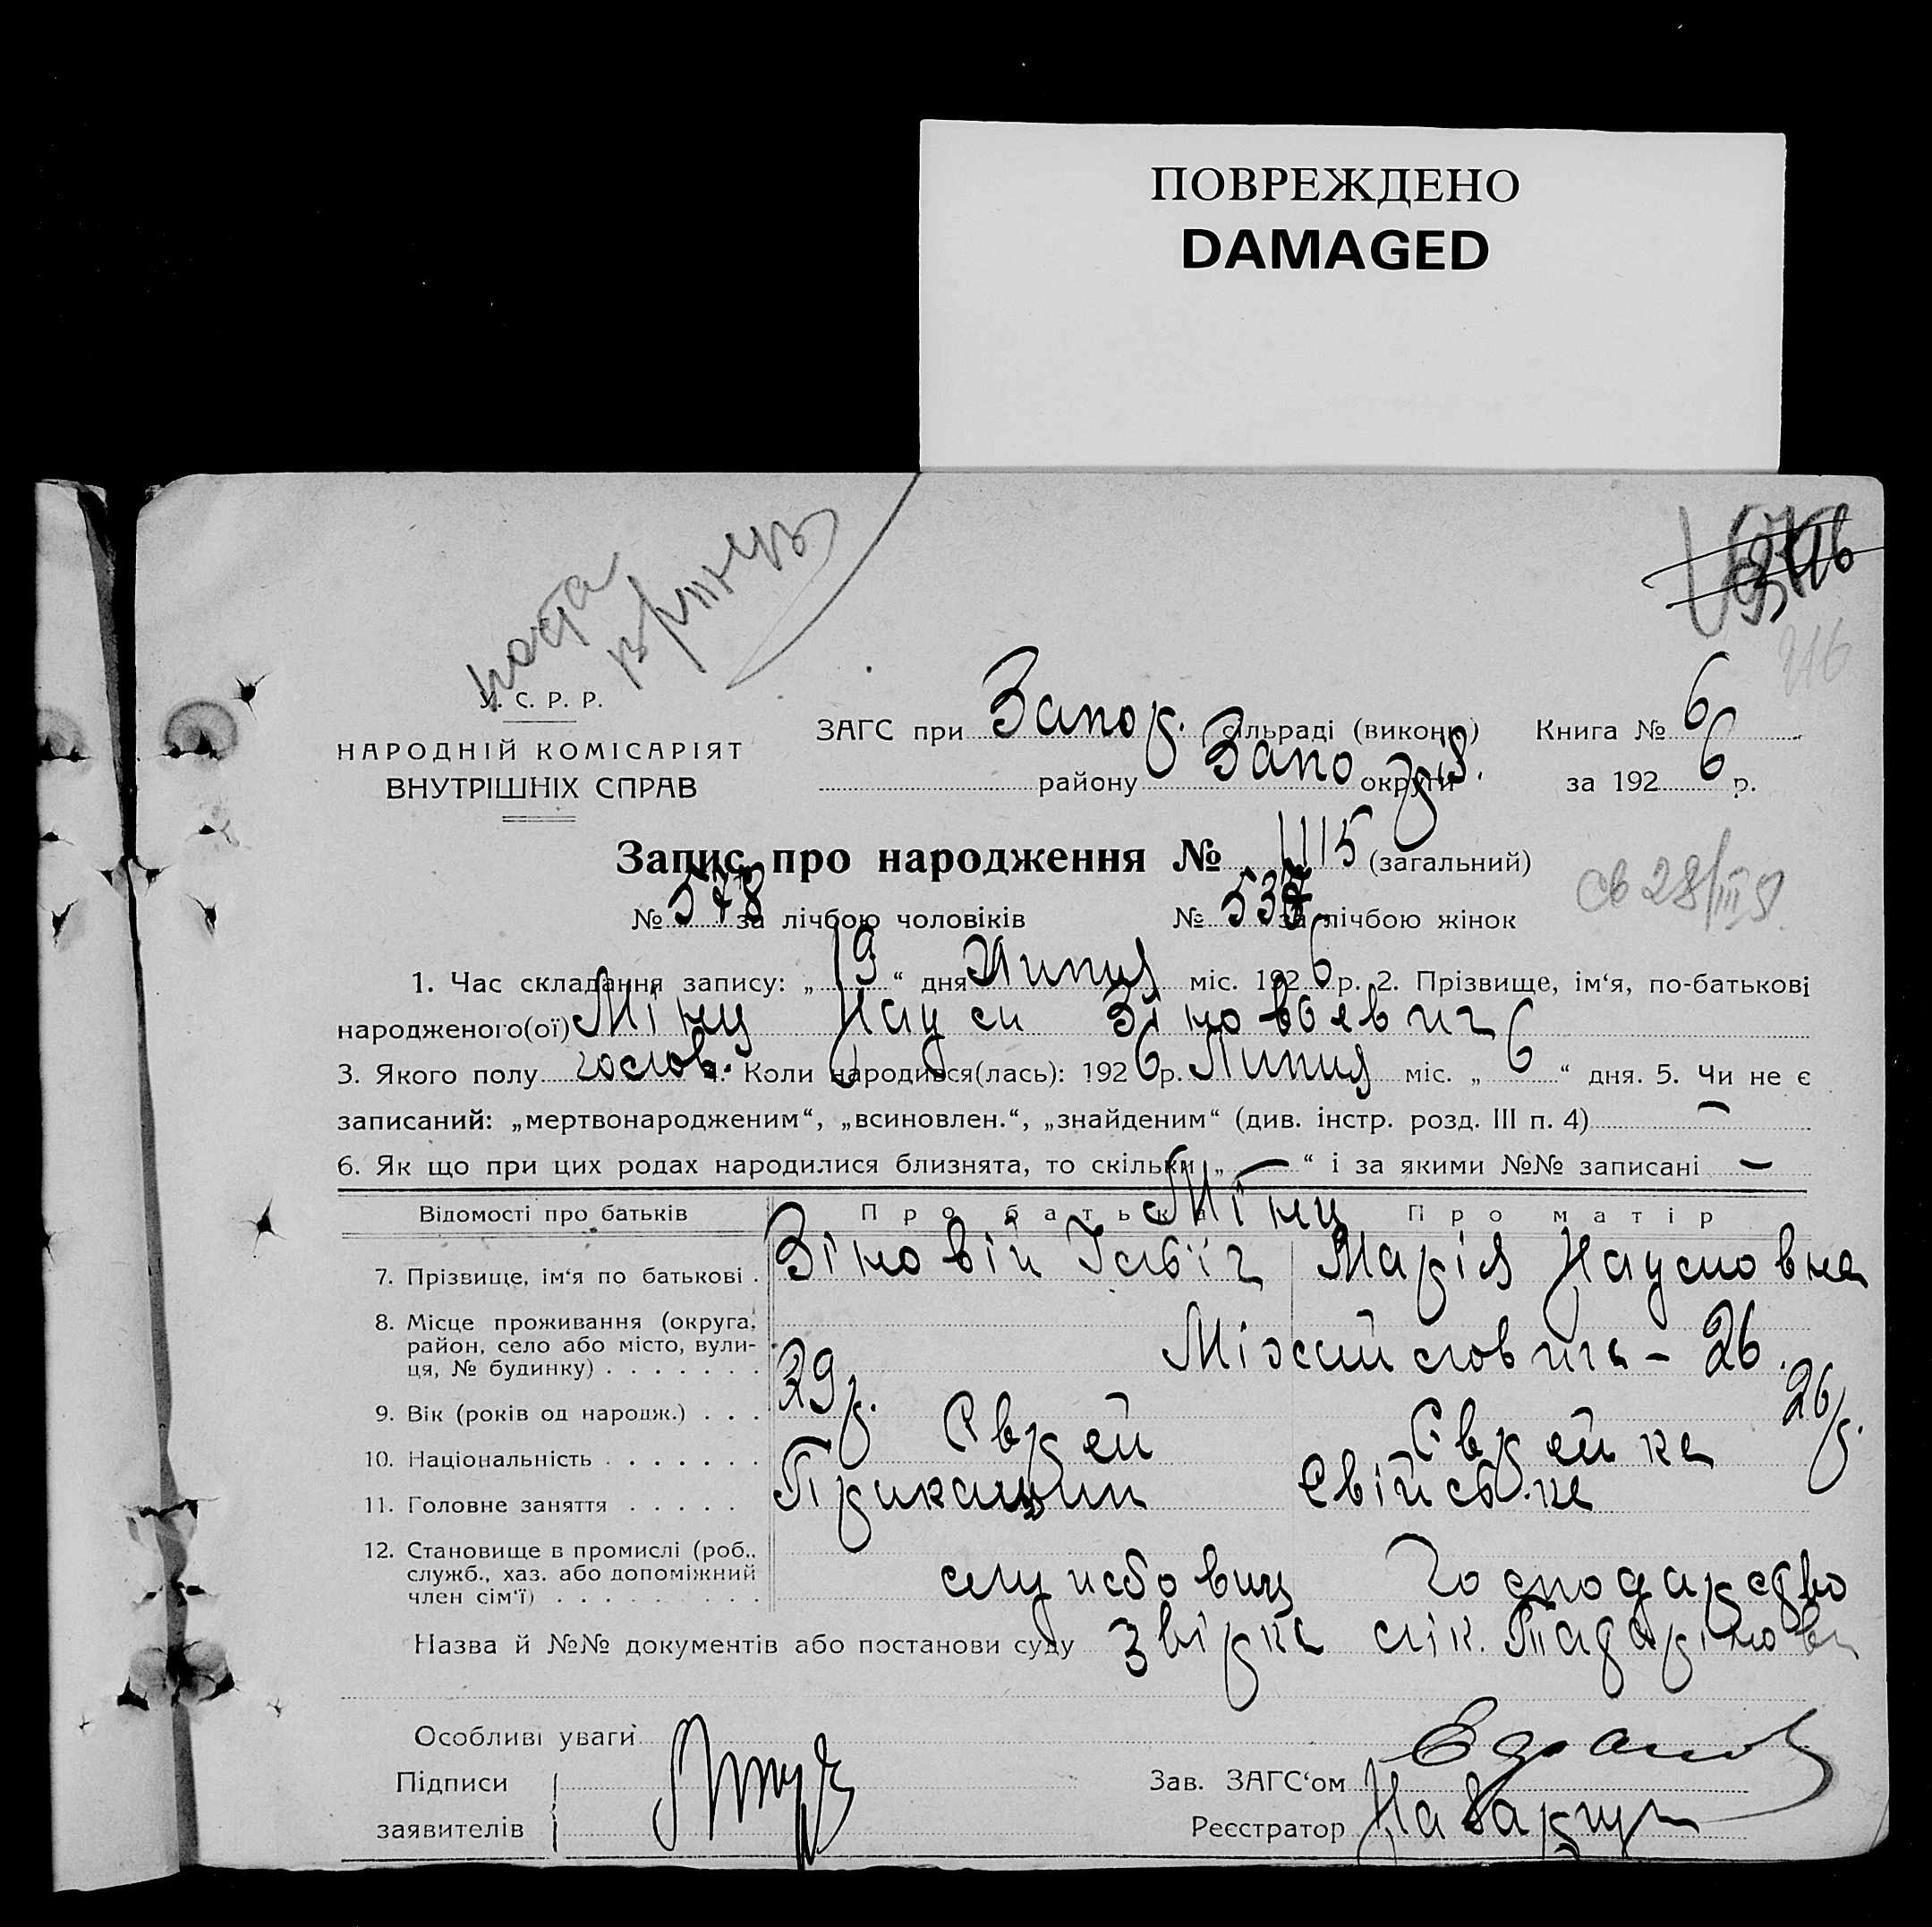 ПОВРЕЖДЕНО
DAMAGED
216
У. С. Р. Р.
НАРОДНІЙ КОМІСАРІЯТ
ВНУТРІШНІХ СПРАВ
ЗАГС при Запор. сільраді (виконк) Книга № 6
району Запоріз. округи за 1926 р.
Запис про народження № 1115 (загальний)
№ 578 за лічбою чоловіків № 537 за лічбою жінок
св 28/III
1. Час складання запису: „19“ дня Липня міс. 1926 р. 2. Прізвище, ім‘я, по-батькові
народженого(ої) Мінц Наум Зіновьевич
3. Якого полу чолов. 4. Коли народився(лась): 1926 р. Липня міс. „6“ дня. 5. Чи не є
записаний: „мертвонародженим“, „всиновлен.“, „знайденим“ (див. інстр. розд. III п. 4) —
6. Як що при цих родах народилися близнята, то скільки „—“ і за якими №№ записані —
Відомості про батьків Про батька Про матір
Мінц
7. Прізвище, ім‘я по батькові . Зіновій Марія Наумовна
8. Місце проживання (округа,
район, село або місто, вули-
ця, № будинку) . . . . . . . – 26.
9. Вік (років од народж.) . . . 29 р. 26 р.
10. Національність . . . . . . . Єврей Єврейка
11. Головне заняття . . . . . Прикащик Свійськe
12. Становище в промислі (роб.,
служб., хаз. або допоміжний
член сім‘ї) . . . . . . . . . службовиц господарство
Назва й №№ документів або постанови суду Звірка лік.
Особливі уваги
Підписи
заявителів
Зав. ЗАГС‘ом
Реєстратор